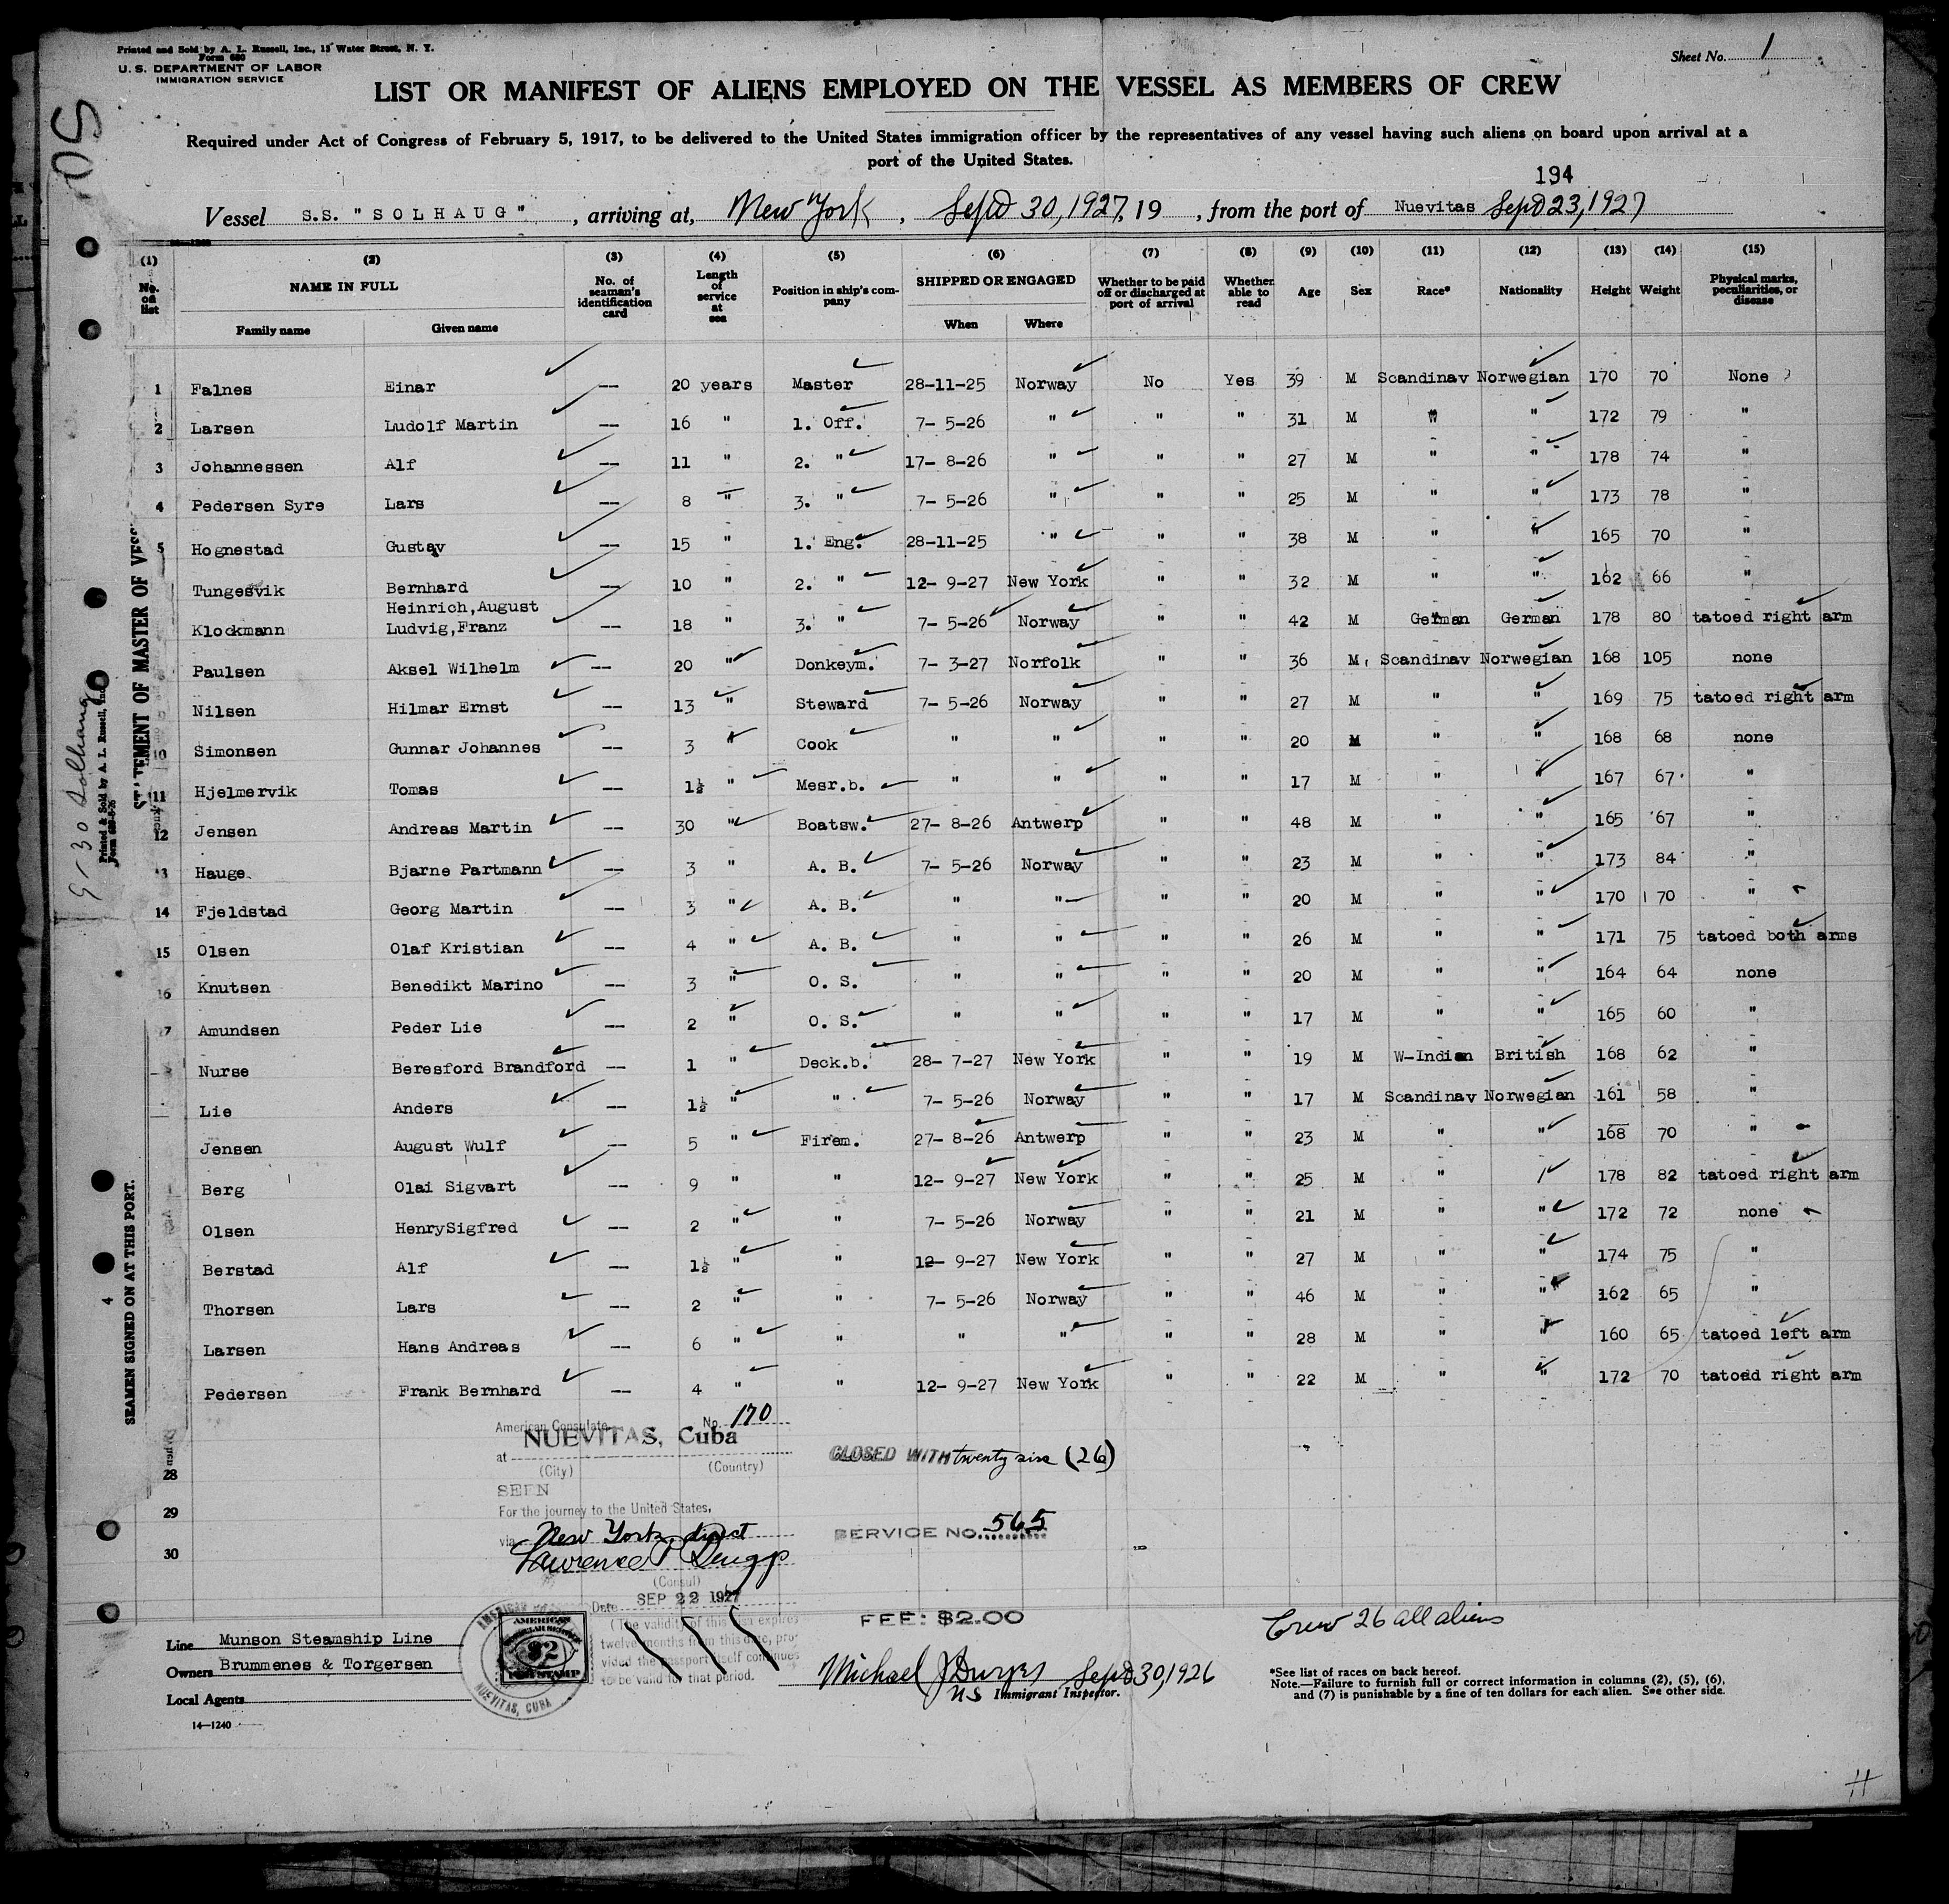 Printed and Sold by A. L. Russell, Inc., 13 Water Street, N. Y.
Form 680
U. S. DEPARTMENT OF LABOR
IMMIGRATION SERVICE
Sheet No. 1
LIST OR MANIFEST OF ALIENS EMPLOYED ON THE VESSEL AS MEMBERS OF CREW
Required under Act of Congress of February 5, 1917, to be delivered to the United States immigration officer by the representatives of any vessel having such aliens on board upon arrival at a
port of the United States.
194
Vessel S.S. "SOLHAUG", arriving at, New York, Sept 30, 1927, 19 , from the port of Nuevitas Sept 23, 1927
(1) (2) (3) (4) (5) (6) (7) (8) (9) (10) (11) (12) (13) (14) (15)
No. on list NAME IN FULL Family name Given name No. of seaman's identification card Length of service at sea Position in ship's company SHIPPED OR ENGAGED When Where Whether to be paid off or discharged at port of arrival Whether able to read Age Sex Race* Nationality Height Weight Physical marks, peculiarities, or disease
1 Falnes Einar — 20 years Master 28-11-25 Norway No Yes 39 M Scandinav Norwegian 170 70 None
2 Larsen Ludolf Martin — 16 " 1. Off. 7- 5-26 " " " 31 M " " 172 79 "
3 Johannessen Alf — 11 " 2. " 17- 8-26 " " " 27 M " " 178 74 "
4 Pedersen Syre Lars — 8 " 3. " 7- 5-26 " " " 25 M " " 173 78 "
5 Hognestad Gustav — 15 " 1. Eng. 28-11-25 " " " 38 M " " 165 70 "
Tungesvik Bernhard — 10 " 2. " 12- 9-27 New York " " 32 M " " 162 66 "
Klockmann Heinrich,August Ludvig,Franz — 18 " 3. " 7- 5-26 Norway " " 42 M German German 178 80 tatoed right arm
Paulsen Aksel Wilhelm — 20 " Donkeym. 7- 3-27 Norfolk " " 36 M Scandinav Norwegian 168 105 none
Nilsen Hilmar Ernst — 13 " Steward 7- 5-26 Norway " " 27 M " " 169 75 tatoed right arm
10 Simonsen Gunnar Johannes — 3 " Cook " " " " 20 M " " 168 68 none
11 Hjelmervik Tomas — 1½ " Mesr.b. " " " " 17 M " " 167 67 "
12 Jensen Andreas Martin — 30 " Boatsw. 27- 8-26 Antwerp " " 48 M " " 165 67 "
13 Hauge Bjarne Partmann — 3 " A. B. 7- 5-26 Norway " " 23 M " " 173 84 "
14 Fjeldstad Georg Martin — 3 " A. B. " " " " 20 M " " 170 70 "
15 Olsen Olaf Kristian — 4 " A. B. " " " " 26 M " " 171 75 tatoed both arms
16 Knutsen Benedikt Marino — 3 " O. S. " " " " 20 M " " 164 64 none
17 Amundsen Peder Lie — 2 " O. S. " " " " 17 M " " 165 60 "
Nurse Beresford Brandford — 1 " Deck.b. 28- 7-27 New York " " 19 M W-Indian British 168 62 "
Lie Anders — 1½ " " 7- 5-26 Norway " " 17 M Scandinav Norwegian 161 58 "
Jensen August Wulf — 5 " Firem. 27- 8-26 Antwerp " " 23 M " " 168 70 "
Berg Olai Sigvart — 9 " " 12- 9-27 New York " " 25 M " " 178 82 tatoed right arm
Olsen HenrySigfred — 2 " " 7- 5-26 Norway " " 21 M " " 172 72 none
Berstad Alf — 1½ " " 12- 9-27 New York " " 27 M " " 174 75 "
Thorsen Lars — 2 " " 7- 5-26 Norway " " 46 M " " 162 65 "
Larsen Hans Andreas — 6 " " " " " " 28 M " " 160 65 tatoed left arm
Pedersen Frank Bernhard — 4 " " 12- 9-27 New York " " 22 M " " 172 70 tatoed right arm
28
29
30
American Consulate No. 170
at NUEVITAS, Cuba
(City) (Country)
SEEN
For the journey to the United States,
via New York, direct
Lawrence P
(Consul)
Date SEP 22 1927
(The validity of this visa expires
twelve months from this date, pro-
vided the passport itself continues
to be valid for that period.
CLOSED WITH twenty six (26)
SERVICE NO. 565
FEE: $2.00
Michael J Sept 30, 1926
US Immigrant Inspector.
Crew 26 all aliens
Line Munson Steamship Line
Owners Brummenes & Torgersen
Local Agents
14—1240
AMERICAN
$2
FEE STAMP
NUEVITAS, CUBA
*See list of races on back hereof.
Note.—Failure to furnish full or correct information in columns (2), (5), (6),
and (7) is punishable by a fine of ten dollars for each alien. See other side.
50
9-30 Solhaug
Printed & Sold by A. L. Russell, Inc.
STATEMENT OF MASTER OF VESS
SEAMEN SIGNED ON AT THIS PORT.
4